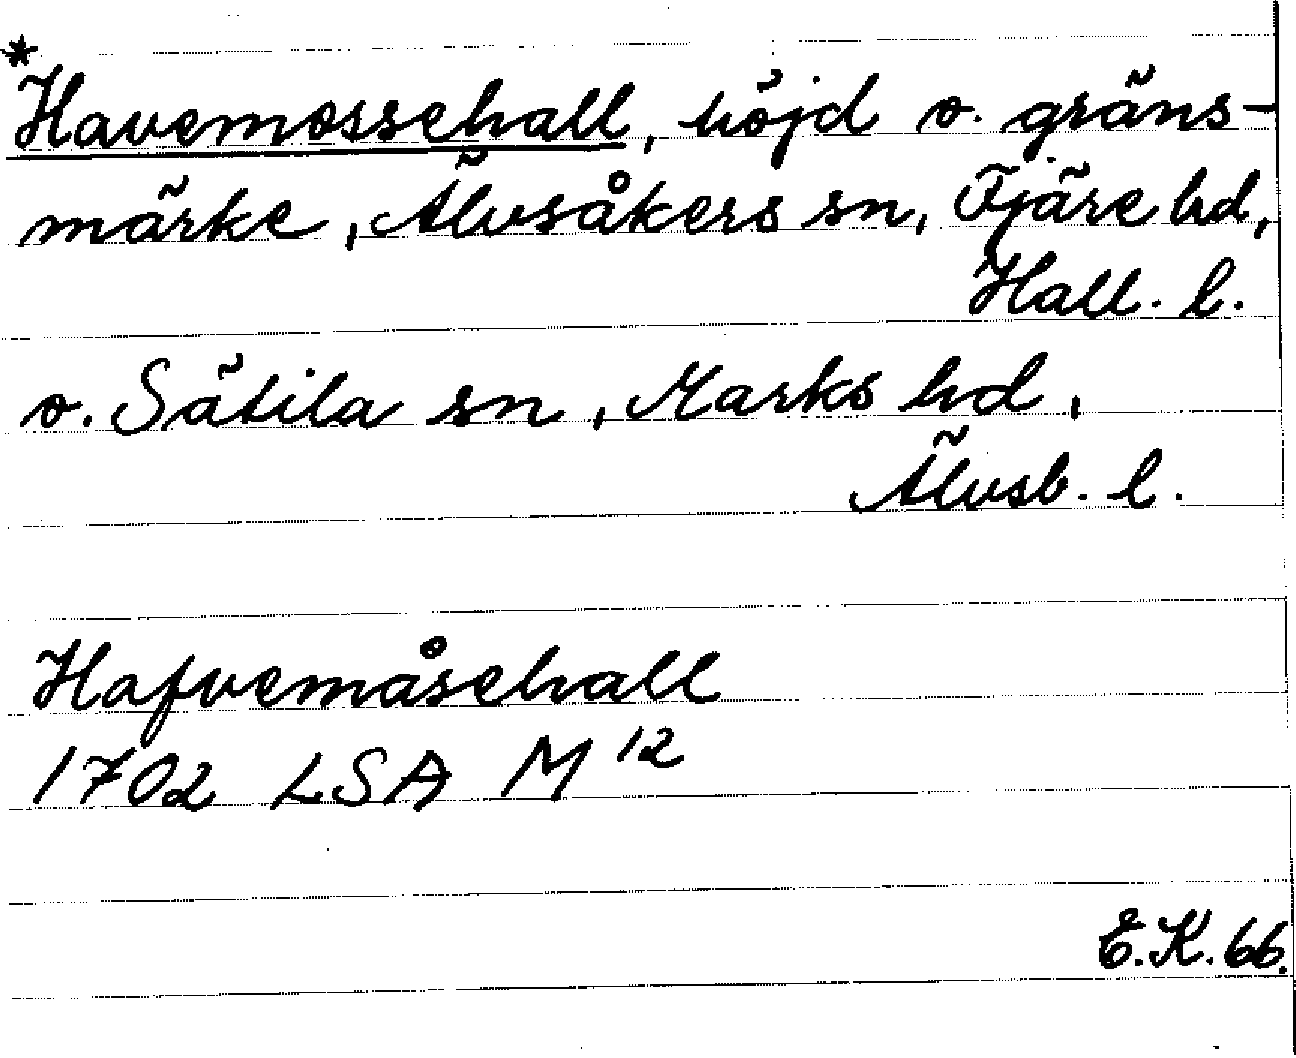 *Havemossehall, höjd o. gräns-
märke, Älvsåkers sn, Fjäre hd,
Hall. l.
o. Sätila sn, Marks hd,
Älvsb. l.
Hafvemåsehall
1702 LSA M 12
E.K. 66.